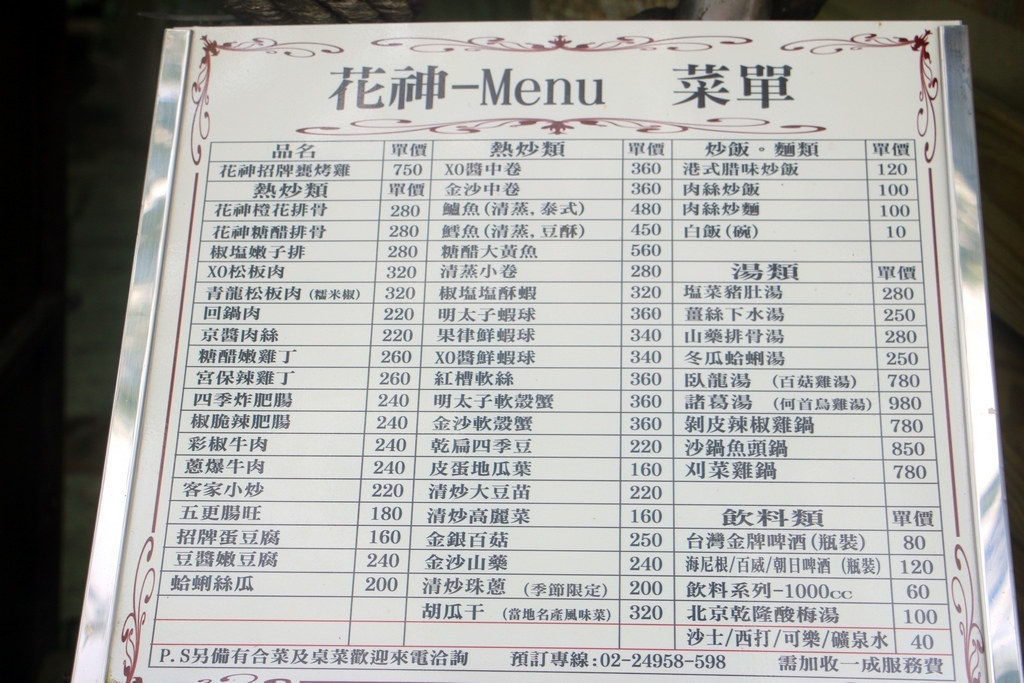 花神-Menu 菜單
品名 單價 熱炒類 單價 炒飯。麵類 單價
花神招牌甕烤雞 750 XO醬中卷 360 港式腊味炒飯 120
熱炒類 單價 金沙中卷 360 肉絲炒飯 100
花神橙花排骨 280 鱸魚(清蒸,泰式) 480 肉絲炒麵 100
花神糖醋排骨 280 鱈魚(清蒸,豆酥) 450 白飯(碗) 10
椒塩嫩子排 280 糖醋大黃魚 560
XO松板肉 320 清蒸小卷 280 湯類 單價
青龍松板肉(糯米椒) 320 椒塩塩酥蝦 320 塩菜豬肚湯 280
回鍋肉 220 明太子蝦球 360 薑絲下水湯 250
京醬肉絲 220 果律鮮蝦球 340 山藥排骨湯 280
糖醋嫩雞丁 260 XO醬鮮蝦球 340 冬瓜蛤蜊湯 250
宮保辣雞丁 260 紅槽軟絲 360 臥龍湯 (百菇雞湯) 780
四季炸肥腸 240 明太子軟殼蟹 360 諸葛湯 (何首烏雞湯) 980
椒脆辣肥腸 240 金沙軟殼蟹 360 剝皮辣椒雞鍋 780
彩椒牛肉 240 乾扁四季豆 220 沙鍋魚頭鍋 850
蔥爆牛肉 240 皮蛋地瓜葉 160 刈菜雞鍋 780
客家小炒 220 清炒大豆苗 220
五更腸旺 180 清炒高麗菜 160 飲料類 單價
招牌蛋豆腐 160 金銀百菇 250 台灣金牌啤酒(瓶裝) 80
豆醬嫩豆腐 240 金沙山藥 240 海尼根/百威/朝日啤酒(瓶裝) 120
蛤蜊絲瓜 200 清炒珠蔥 (季節限定) 200 飲料系列-1000cc 60
胡瓜干 (當地名產風味菜) 320 北京乾隆酸梅湯 100
沙士/西打/可樂/礦泉水 40
P.S另備有合菜及桌菜歡迎來電洽詢 預訂專線:02-24958-598 需加收一成服務費